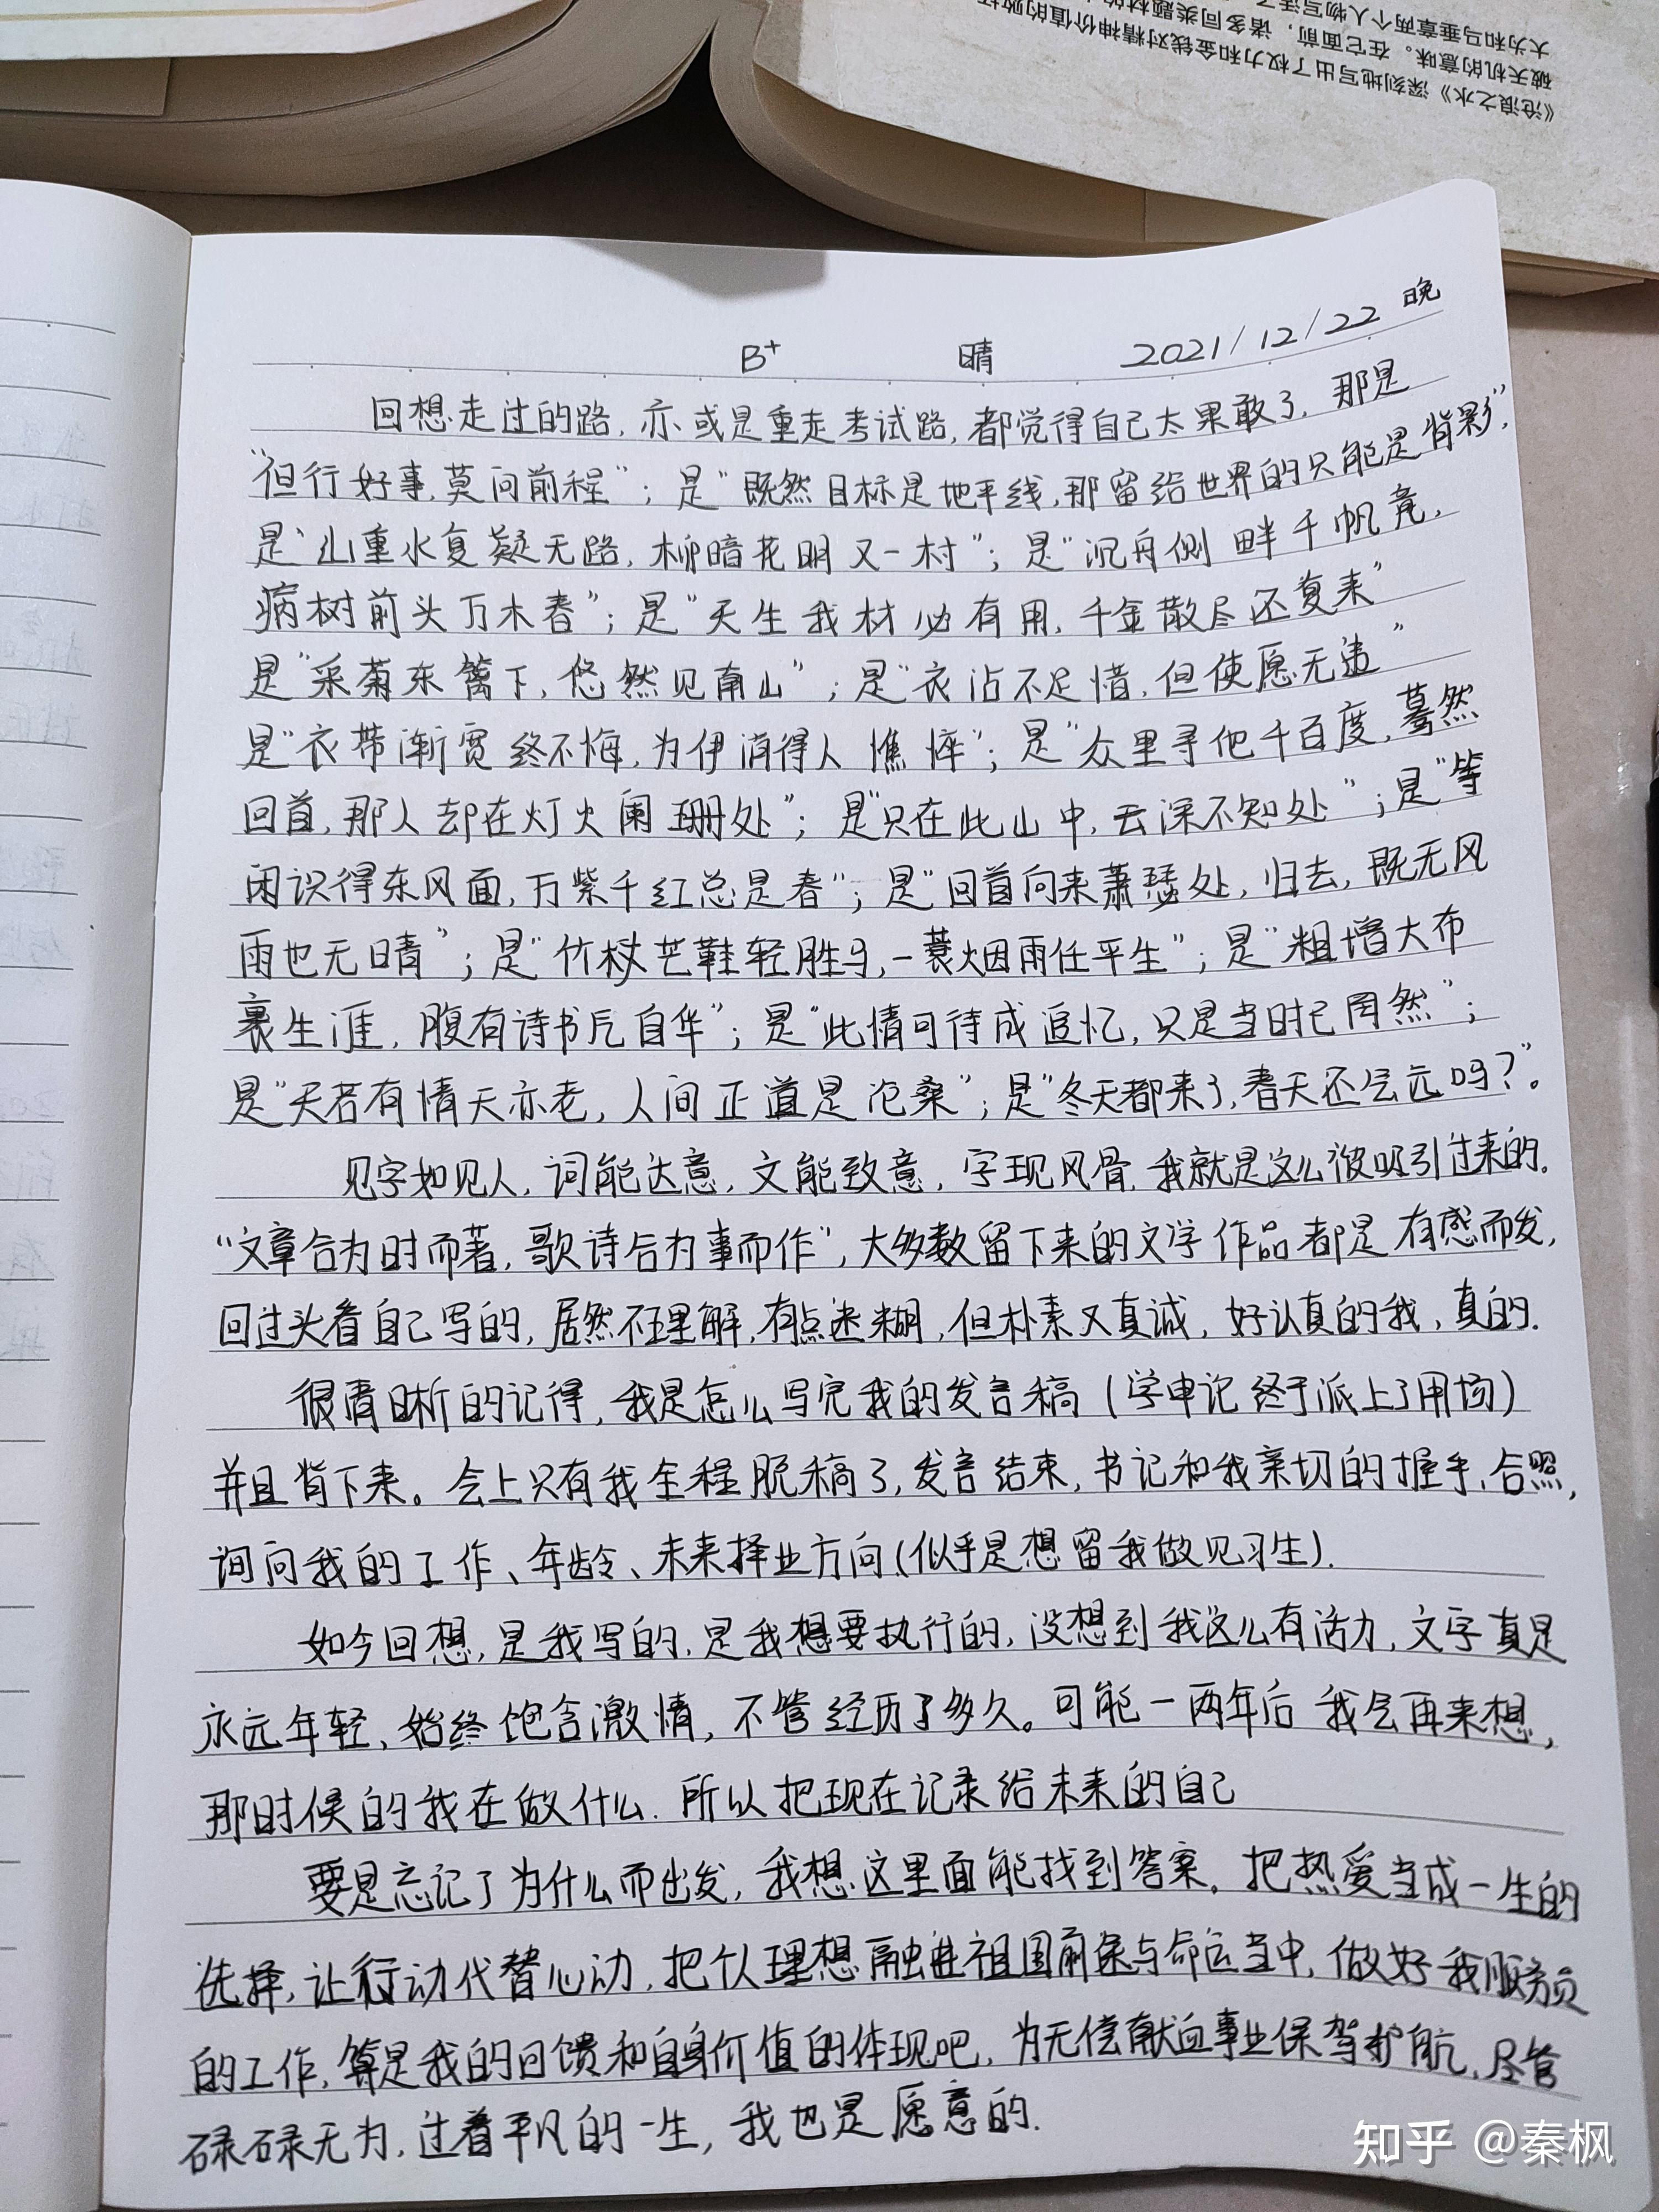 《沧浪之水》深刻地写出了权力和金钱对精神价值的败坏
破天机的意味。在它面前，诸多同类题材的
大为和马垂章两个人物写活了
B+ 晴 2021/12/22 晚
回想走过的路，亦或是重走考试路，都觉得自己太果敢了，那是
“但行好事，莫问前程”；是“既然目标是地平线，那留给世界的只能是背影”，
是“山重水复疑无路，柳暗花明又一村”；是“沉舟侧畔千帆竞，
病树前头万木春”；是“天生我材必有用，千金散尽还复来”
是“采菊东篱下，悠然见南山”；是“衣沾不足惜，但使愿无违”
是“衣带渐宽终不悔，为伊消得人憔悴”；是“众里寻他千百度，蓦然
回首，那人却在灯火阑珊处”；是“只在此山中，云深不知处”；是“等
闲识得东风面，万紫千红总是春”；是“回首向来萧瑟处，归去，既无风
雨也无晴”；是“竹杖芒鞋轻胜马，一蓑烟雨任平生”；是“粗增大布
裹生涯，腹有诗书气自华”；是“此情可待成追忆，只是当时已罔然”；
是“天若有情天亦老，人间正道是沧桑”；是“冬天都来了，春天还会远吗？”。
见字如见人，词能达意，文能致意，字现风骨，我就是这么被吸引过来的。
“文章合为时而著，歌诗合为事而作”，大多数留下来的文学作品都是有感而发，
回过头看自己写的，居然不理解，有点迷糊，但朴素又真诚，好认真的我，真的.
很清晰的记得，我是怎么写完我的发言稿（字申记终于派上了用场）
并且背下来。会上只有我全程脱稿了，发言结束，书记和我亲切的握手，合照，
询问我的工作、年龄、未来择业方向（似乎是想留我做见习生）.
如今回想，是我写的，是我想要执行的，没想到我这么有活力，文字真是
永远年轻、始终饱含激情，不管经历了多久。可能一两年后我会再来想，
那时候的我在做什么. 所以把现在记录给未来的自己
要是忘记了为什么而出发，我想这里面能找到答案。把热爱当成一生的
选择，让行动代替心动，把个人理想融进祖国前途与命运当中，做好我服务员
的工作，算是我的回馈和自身价值的体现吧，为无偿献血事业保驾护航，尽管
碌碌无为，过着平凡的一生，我也是愿意的.
知乎 @秦枫